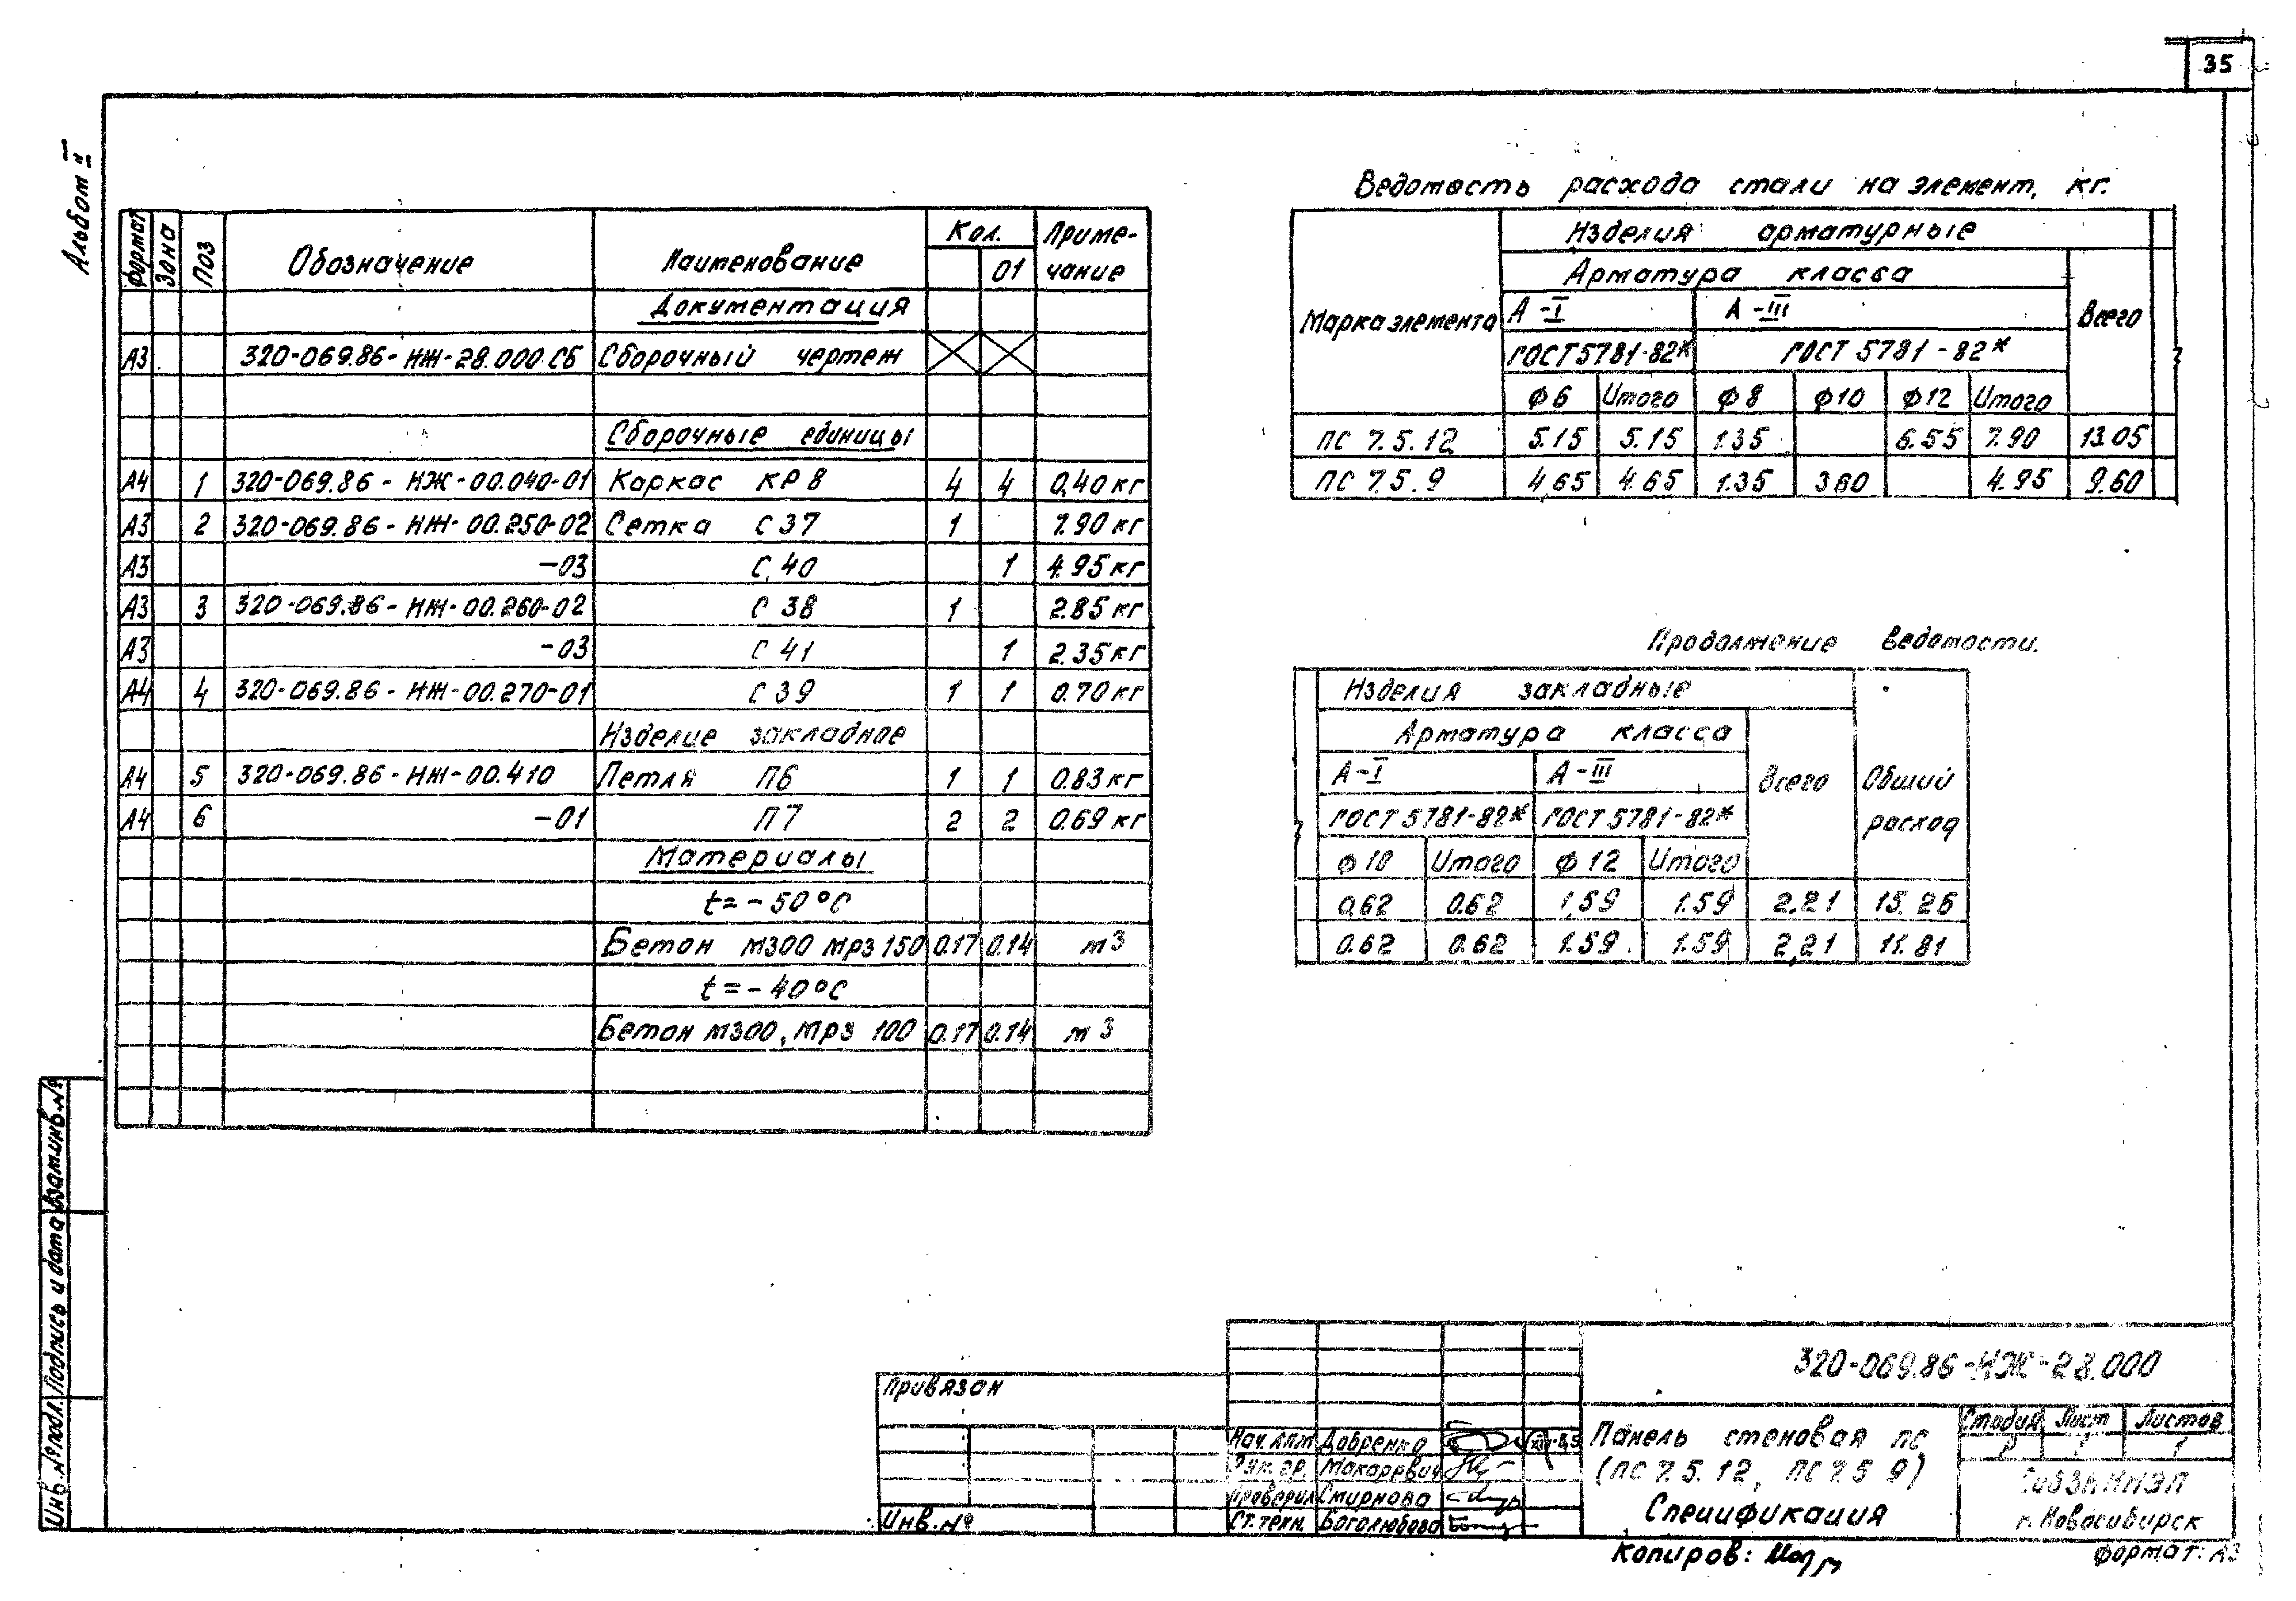 35
Альбом II
Формат Зона Поз Обозначение Наименование Кол. Приме-
01 чание
Документация
А3 320-069.86-НЖ-28.000.СБ Сборочный чертеж
Сборочные единицы
А4 1 320-069.86-НЖ-00.040-01 Каркас КР8 4 4 0,40 кг
А3 2 320-069.86-НЖ-00.250-02 Сетка С37 1 7.90 кг
А3 -03 С.40 1 4.95 кг
А3 3 320-069.86-НЖ-00.260-02 С38 1 2.85 кг
А3 -03 С41 1 2.35 кг
А4 4 320-069.86-НЖ-00.270-01 С39 1 1 0.70 кг
Изделие закладное
А4 5 320-069.86-НЖ-00.410 Петля П6 1 1 0.83 кг
А4 6 -01 П7 2 2 0.69 кг
Материалы
t=-50°С
Бетон М300 Мрз 150 0.17 0.14 м3
t=-40°С
Бетон М300, Мрз 100 0.17 0.14 м3
Ведомость расхода стали на элемент, кг.
Марка элемента Изделия арматурные
Арматура класса Всего
А-I А-III
ГОСТ 5781-82* ГОСТ 5781-82*
Ф6 Итого Ф8 Ф10 Ф12 Итого
ПС 7.5.12 5.15 5.15 1.35 6.55 7.90 13.05
ПС 7.5.9 4.65 4.65 1.35 3.60 4.95 9.60
Продолжение ведомости.
Изделия закладные Общий расход
Арматура класса Всего
А-I А-III
ГОСТ 5781-82* ГОСТ 5781-82*
Ф10 Итого Ф12 Итого
0,62 0.62 1,59 1.59 2.21 15.26
0.62 0.62 1.59 1.59 2,21 11.81
Инв.№подл. Подпись и дата Взам.инв.№
Привязан
Инв.№
320-069.86-НЖ-28.000
Нач. АПМ Довренко
Рук. гр. Макаревич
Проверил Смирнова
Ст.техн. Боголюбова
Панель стеновая ПС
(ПС 7.5.12, ПС 7.5 9)
Спецификация
Стадия Лист Листов
Р 1 1
г. Новосибирск
Копиров:
Формат: А3